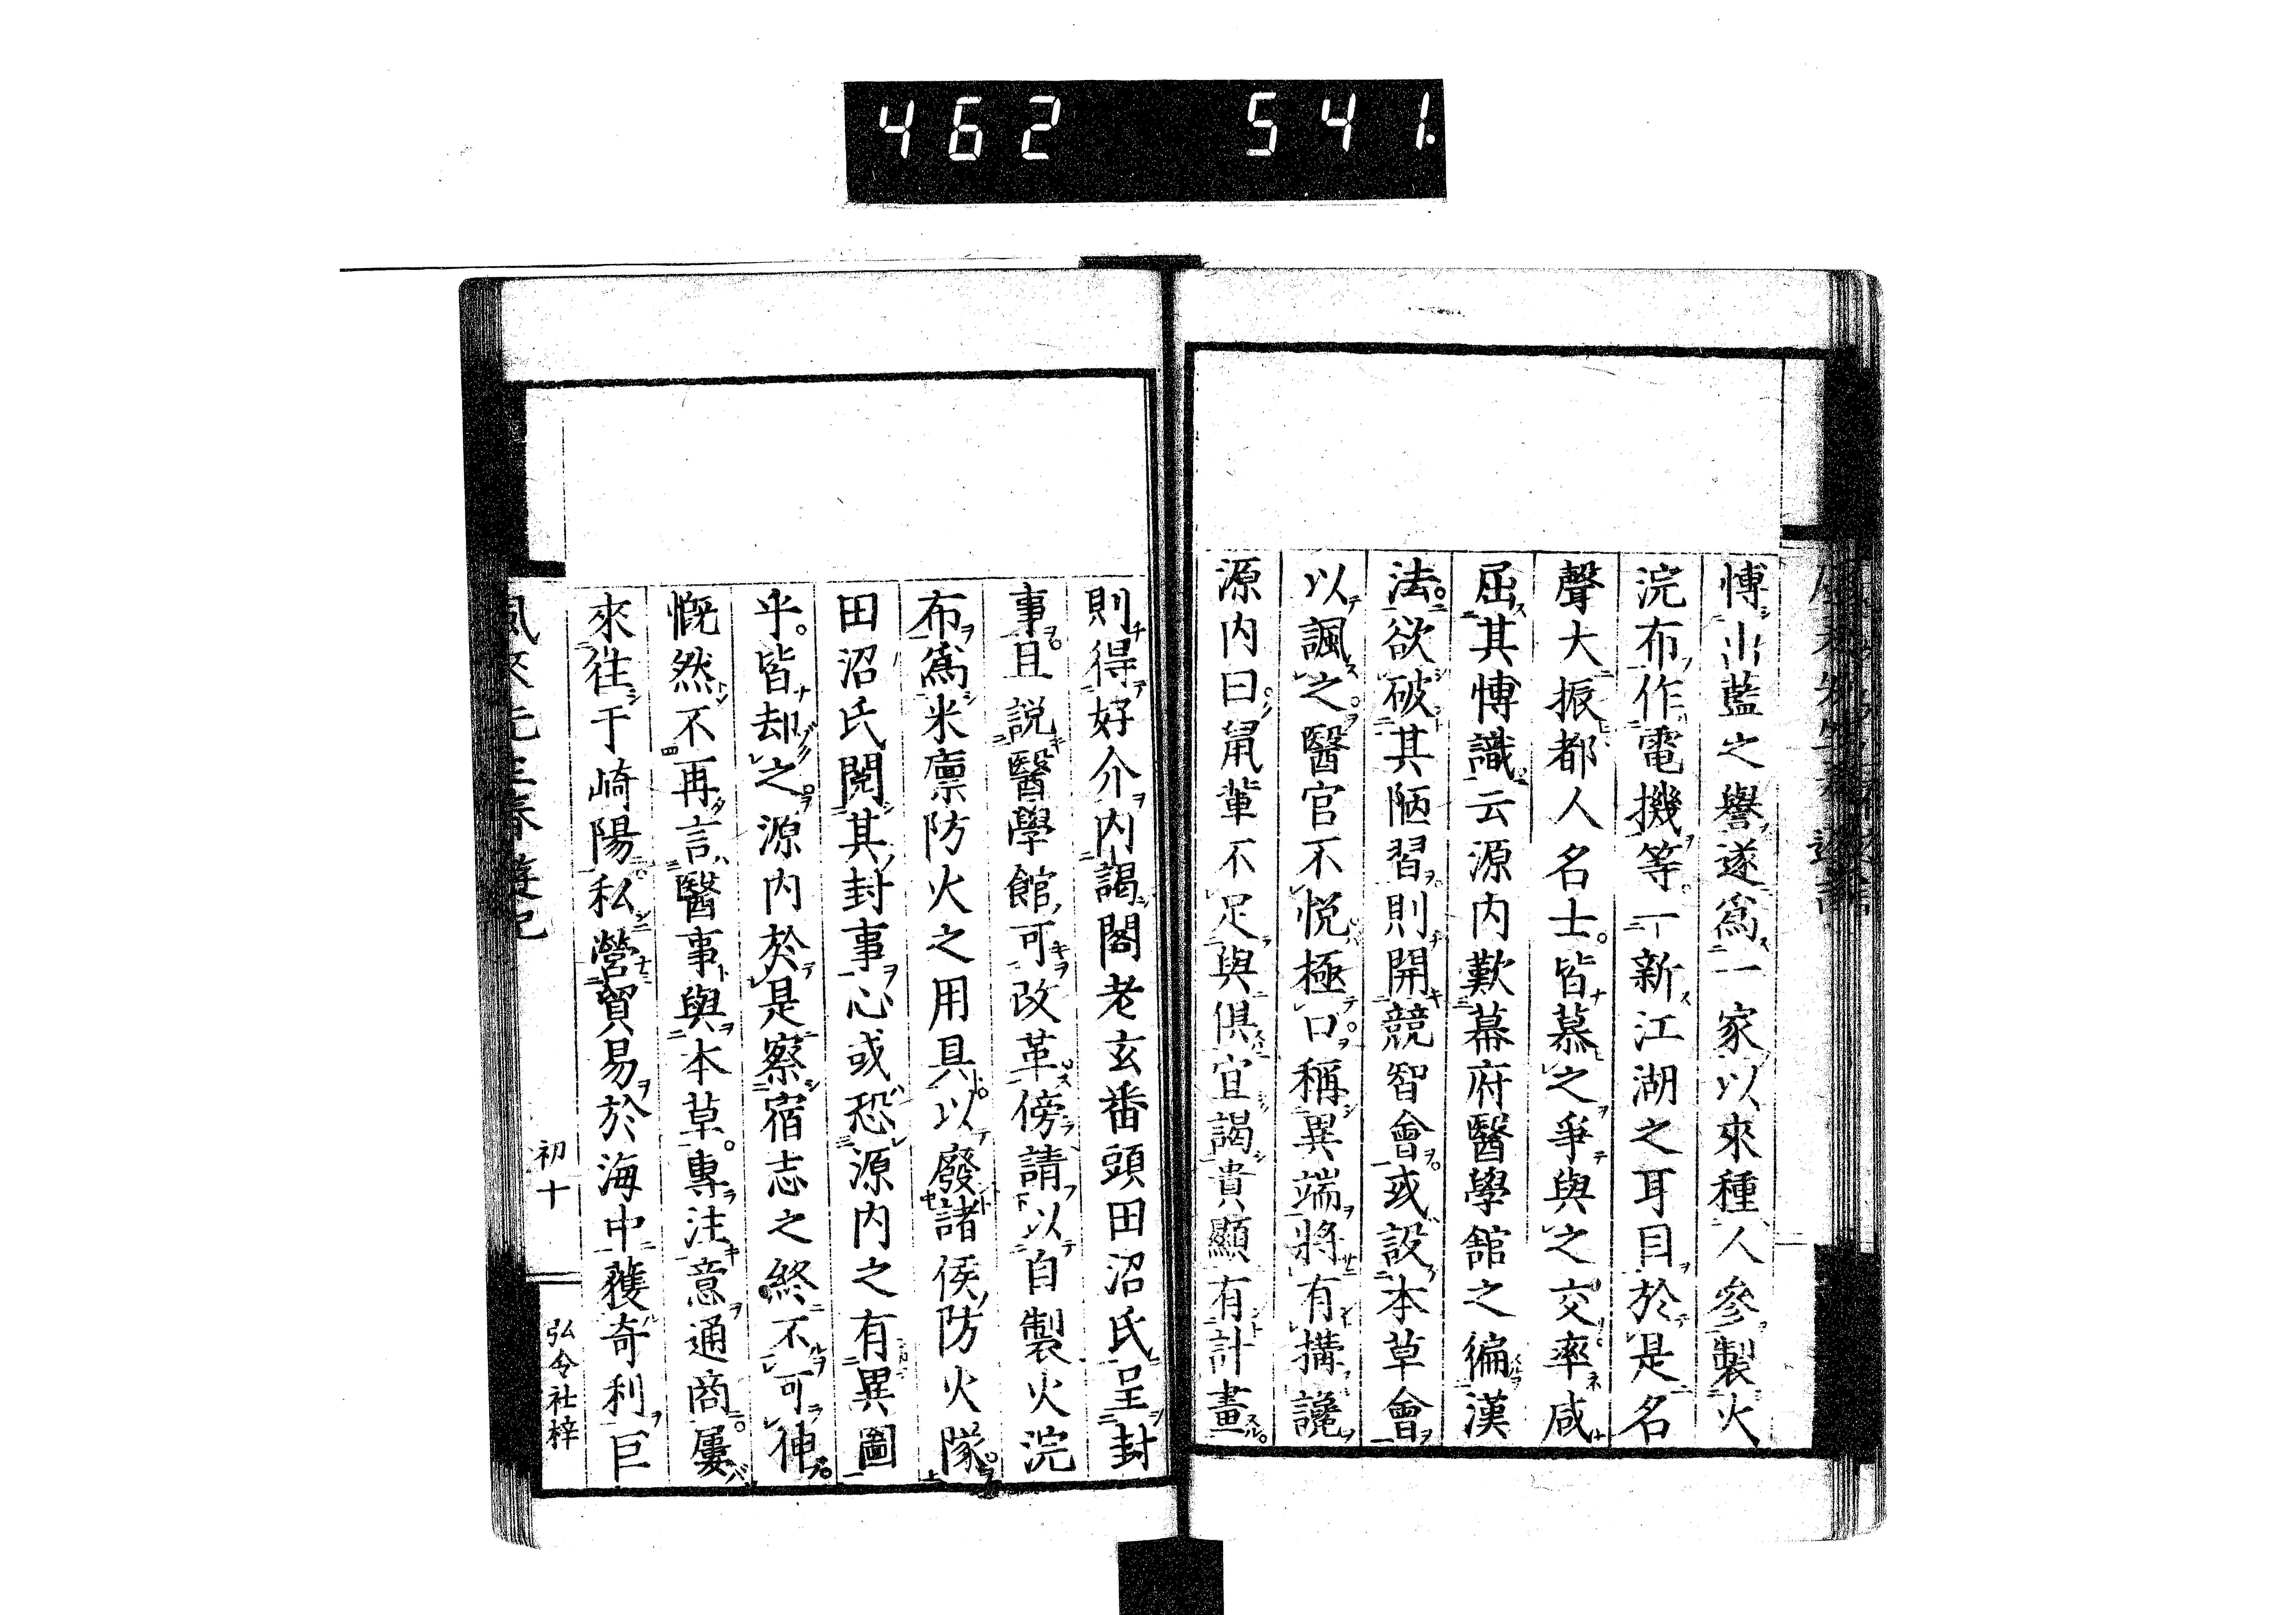 462 541.
博出藍之譽遂爲一家以來種人參製火
浣布作電機等一新江湖之耳目於是名
聲大振都人名士。皆慕之爭與之交率咸
屈其博識云源内歎幕府醫學館之徧漢
法。欲破其陋習。則開競智會。或設本草會
以諷之。醫官不悦極口。稱異端將有搆讒
源内曰。鼠輩不足與俱宜謁貴顯有計畫。
則得好介内謁閣老玄番頭田沼氏呈封
事。且説醫學館可改革傍請以自製火浣
布爲米廩防火之用具。以廢諸侯防火隊。
田沼氏閲其封事心或恐源内之有異圖
乎。皆却之。源内於是察宿志之終不可伸。
慨然不再言醫事與本草。專注意通商。屢
來往于崎陽。私營貿易於海中獲奇利巨
初十
弘令社梓